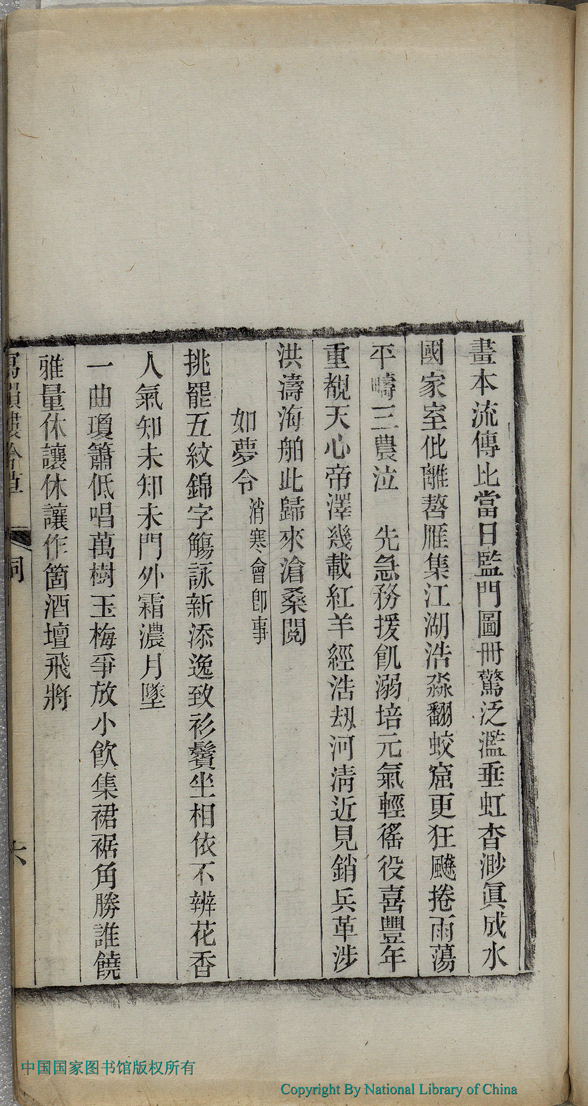 畫本流傳比當日監門圖冊驚泛濫垂虹杳渺眞成水
國家室仳離嗸雁集江湖浩淼翻蛟窟更狂飈捲雨蕩
平疇三農泣　先急務援飢溺培元氣輕徭役喜豐年
重覩天心帝澤幾載紅羊經浩刼河淸近見銷兵革涉
洪濤海舶此歸來滄桑閱
如夢令消寒會卽事
挑罷五紋錦字觴詠新添逸致衫鬢坐相依不辨花香
人氣知未知未門外霜濃月墜
一曲瓊簫低唱萬樹玉梅爭放小飮集裙裾角勝誰饒
雅量休讓休讓作箇酒壇飛將
詞
六
中国国家图书馆版权所有
Copyright By National Library of China